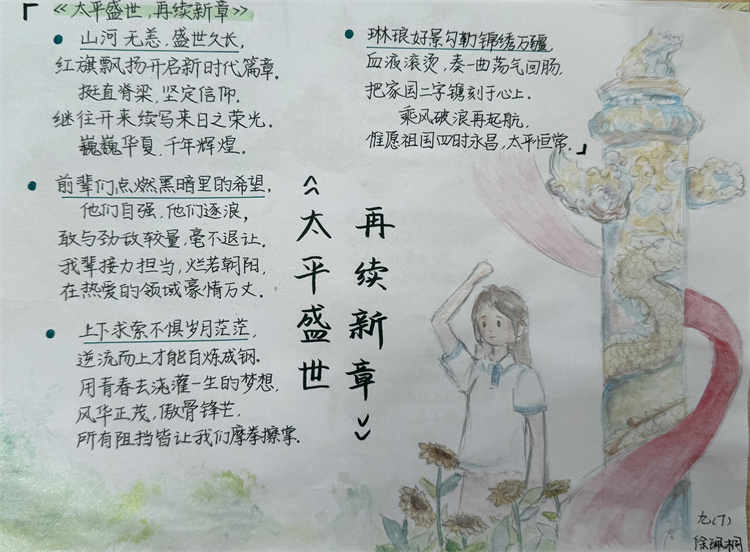 《太平盛世,再续新章》
山河无恙,盛世久长,
红旗飘扬开启新时代篇章.
挺直脊梁,坚定信仰,
继往开来续写来日之荣光.
巍巍华夏,千年辉煌.
前辈们点燃黑暗里的希望,
他们自强,他们逐浪,
敢与劲敌较量,毫不退让.
我辈接力担当,烂若朝阳,
在热爱的领域豪情万丈.
上下求索不惧岁月茫茫,
逆流而上才能百炼成钢.
用青春去浇灌一生的梦想,
风华正茂,傲骨锋芒,
所有阻挡皆让我们摩拳擦掌.
琳琅好景勾勒锦绣万疆,
血液滚烫,奏一曲荡气回肠,
把家国二字镌刻于心上.
乘风破浪再起航,
惟愿祖国四时永昌,太平恒常.
《太平盛世
再续新章》
九(7)
徐珮桐